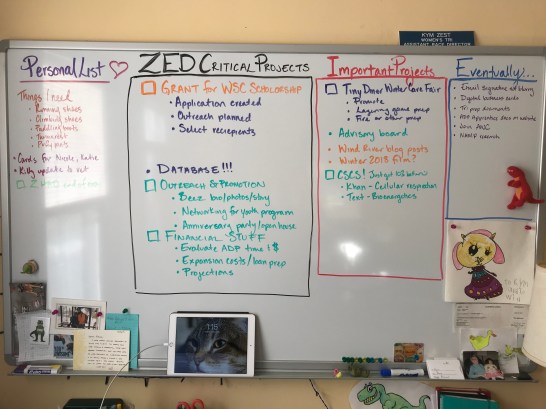 KYM ZEST
WOMEN'S TRI
ASSISTANT RACE DIRECTOR
Personal List
Things I need
• Running shoes
• Climbing shoes
• Paddling boots
• Cards for Nicole, Katie
• Kitty update to vet
ZED Critical Projects
Grant for WSC Scholarship
• Application created
• Outreach planned
• Select recipients
• Database!!!
Outreach & Promotion
• Beez bio/photos/story
• Networking for youth program
• Anniversary party/open house
Financial Stuff
• Evaluate ADP time + $
• Expansion costs/loan prep
• Projections
Important Projects
Tiny Door Winter Care Fair
• Promote
• Layering gear prep
• Fire or other prep
• Advisory board
• Wind River blog posts
• Winter 2018 film?
CSCS!
• Khan - Cellular respiration
• Text - Bioenergetics
Eventually...
• Email signature
• Digital business cards
• Tri prep documents